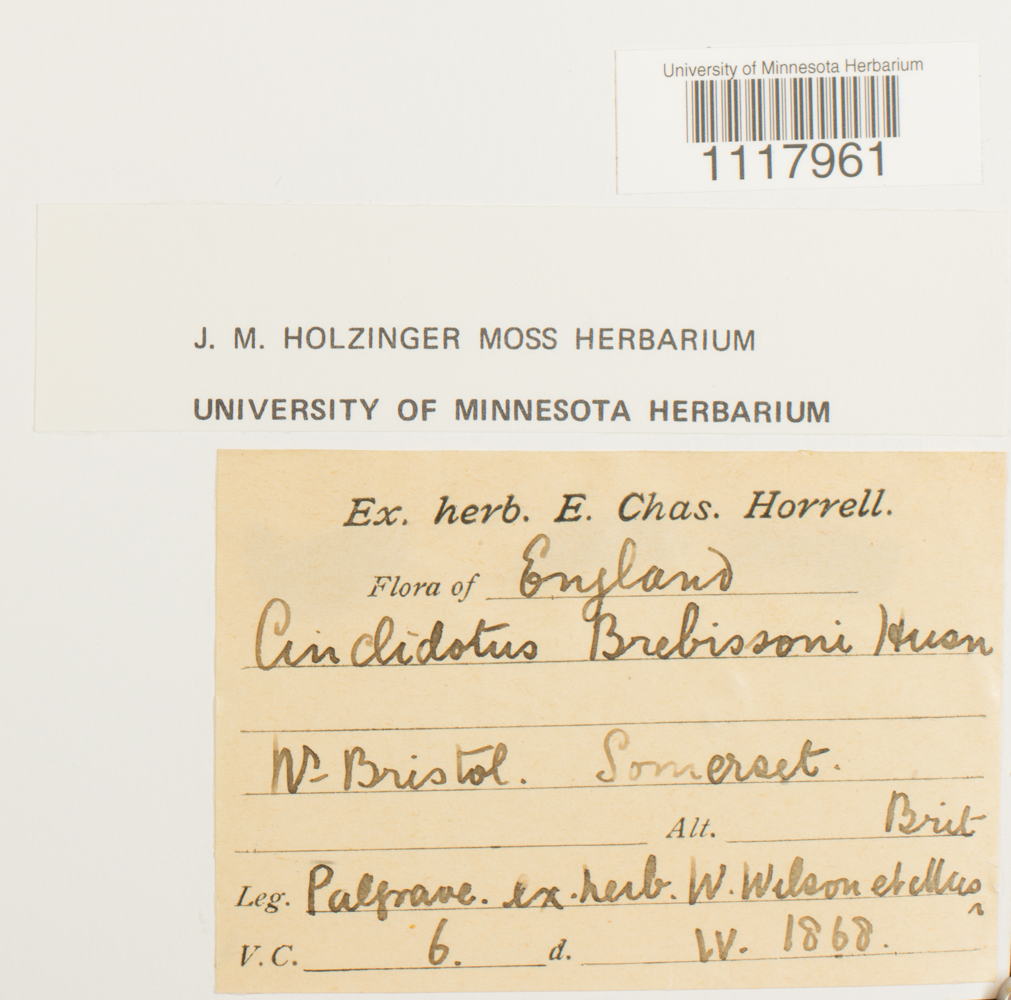 University of Minnesota Herbarium
1117961
J. M. HOLZINGER MOSS HERBARIUM
UNIVERSITY OF MINNESOTA HERBARIUM
Ex. herb. E. Chas. Horrell.
Flora of England
Cinclidotus Brebissoni Husn
Nr Bristol. Somerset.
Alt. Brit
Leg. Palgrave. ex. herb. W. Wilson et Mus ^
V.C. 6. d. IV. 1868.